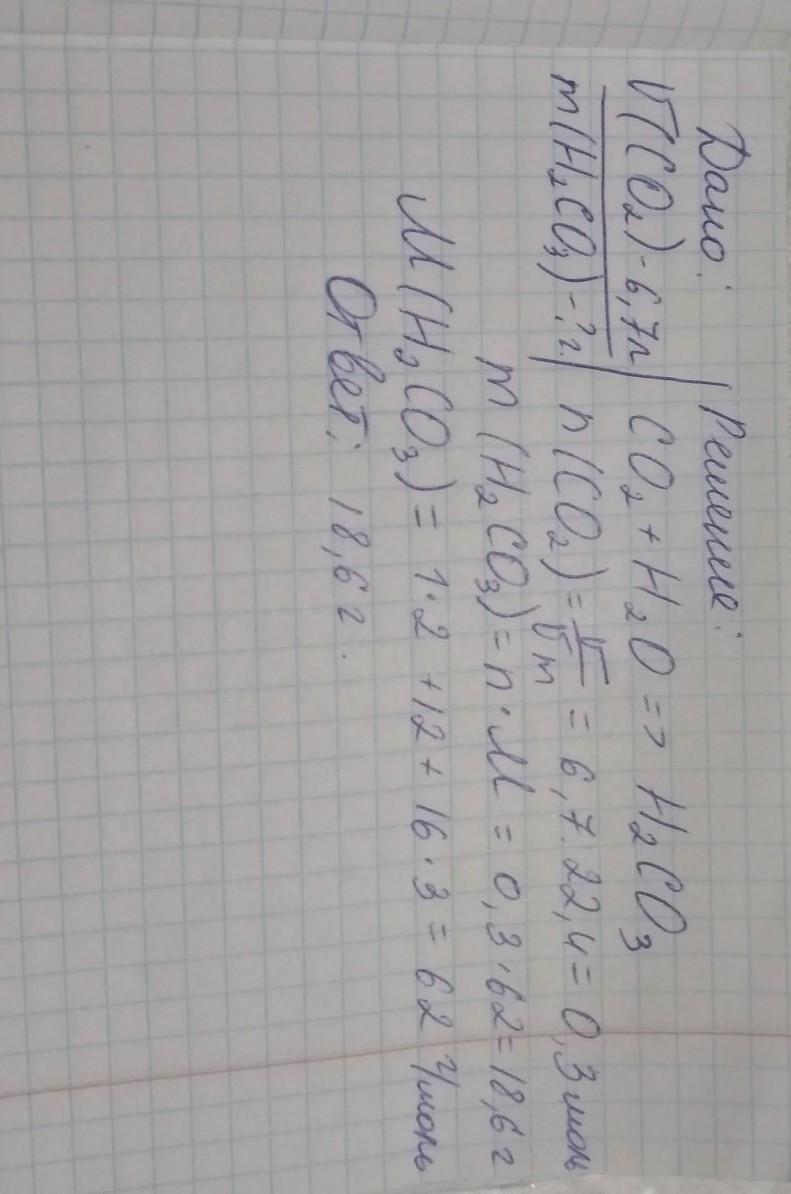 Дано:
V(CO₂)-6,7л
m(H₂CO₃)-?г.
Решение:
CO₂ + H₂O => H₂CO₃
n(CO₂) = V/Vm = 6,7:22,4 = 0,3 моль
m(H₂CO₃) = n·M = 0,3·62 = 18,6 г
M(H₂CO₃) = 1·2 + 12 + 16·3 = 62 г/моль
Ответ: 18,6 г.